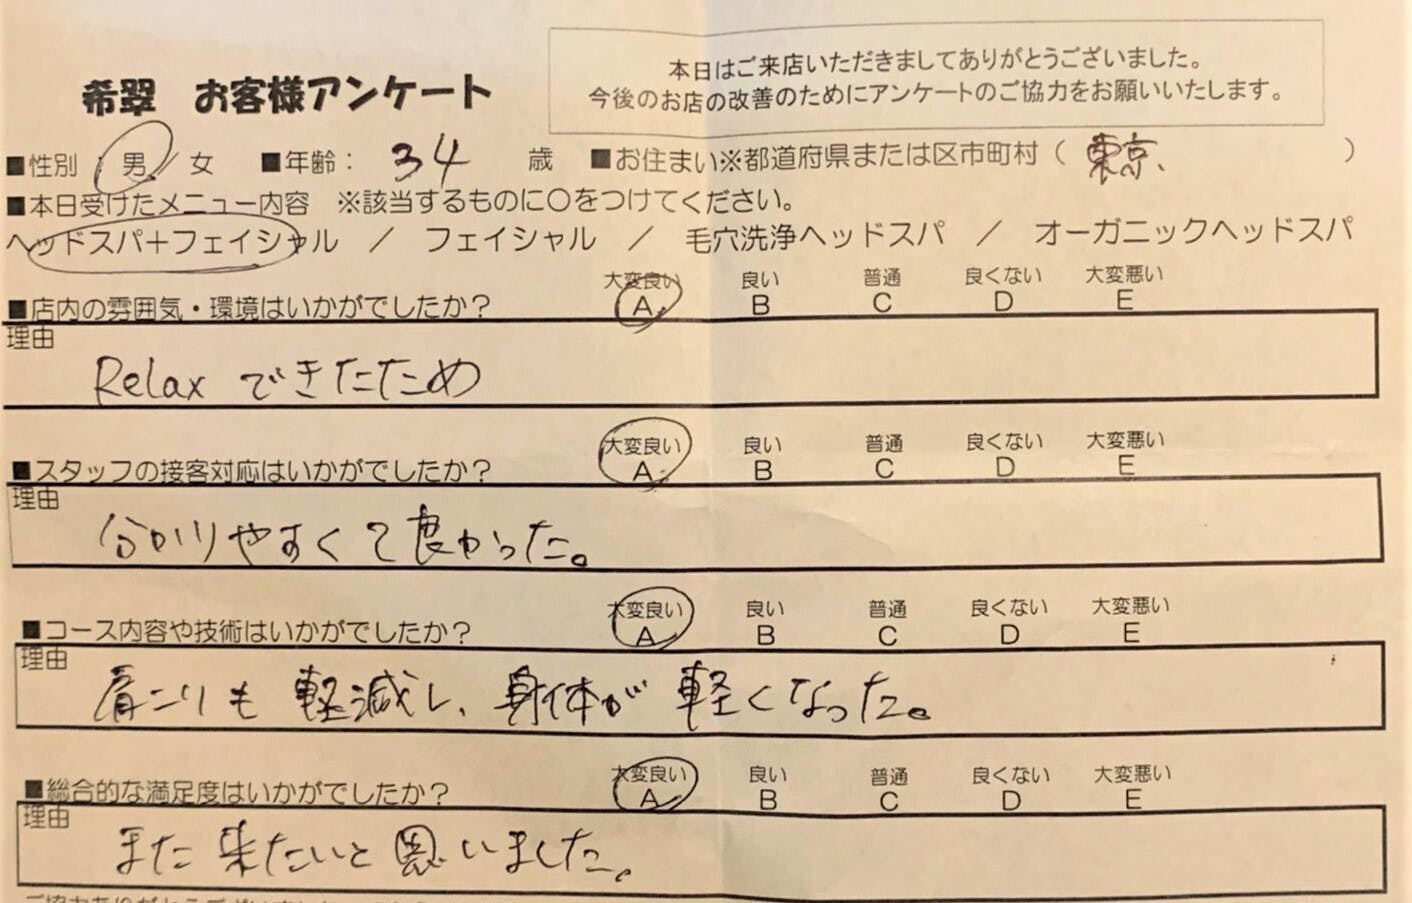 希翠 お客様アンケート
本日はご来店いただきましてありがとうございました。
今後のお店の改善のためにアンケートのご協力をお願いいたします。
■性別：男／女 ■年齢： 34 歳 ■お住まい※都道府県または区市町村（ 東京、 ）
■本日受けたメニュー内容 ※該当するものに○をつけてください。
ヘッドスパ＋フェイシャル ／ フェイシャル ／ 毛穴洗浄ヘッドスパ ／ オーガニックヘッドスパ
大変良い 良い 普通 良くない 大変悪い
■店内の雰囲気・環境はいかがでしたか？ A B C D E
理由
Relax できたため
大変良い 良い 普通 良くない 大変悪い
■スタッフの接客対応はいかがでしたか？ A B C D E
理由
分かりやすくて良かった。
大変良い 良い 普通 良くない 大変悪い
■コース内容や技術はいかがでしたか？ A B C D E
理由
肩こりも軽減し、身体が軽くなった。
大変良い 良い 普通 良くない 大変悪い
■総合的な満足度はいかがでしたか？ A B C D E
理由
また来たいと思いました。